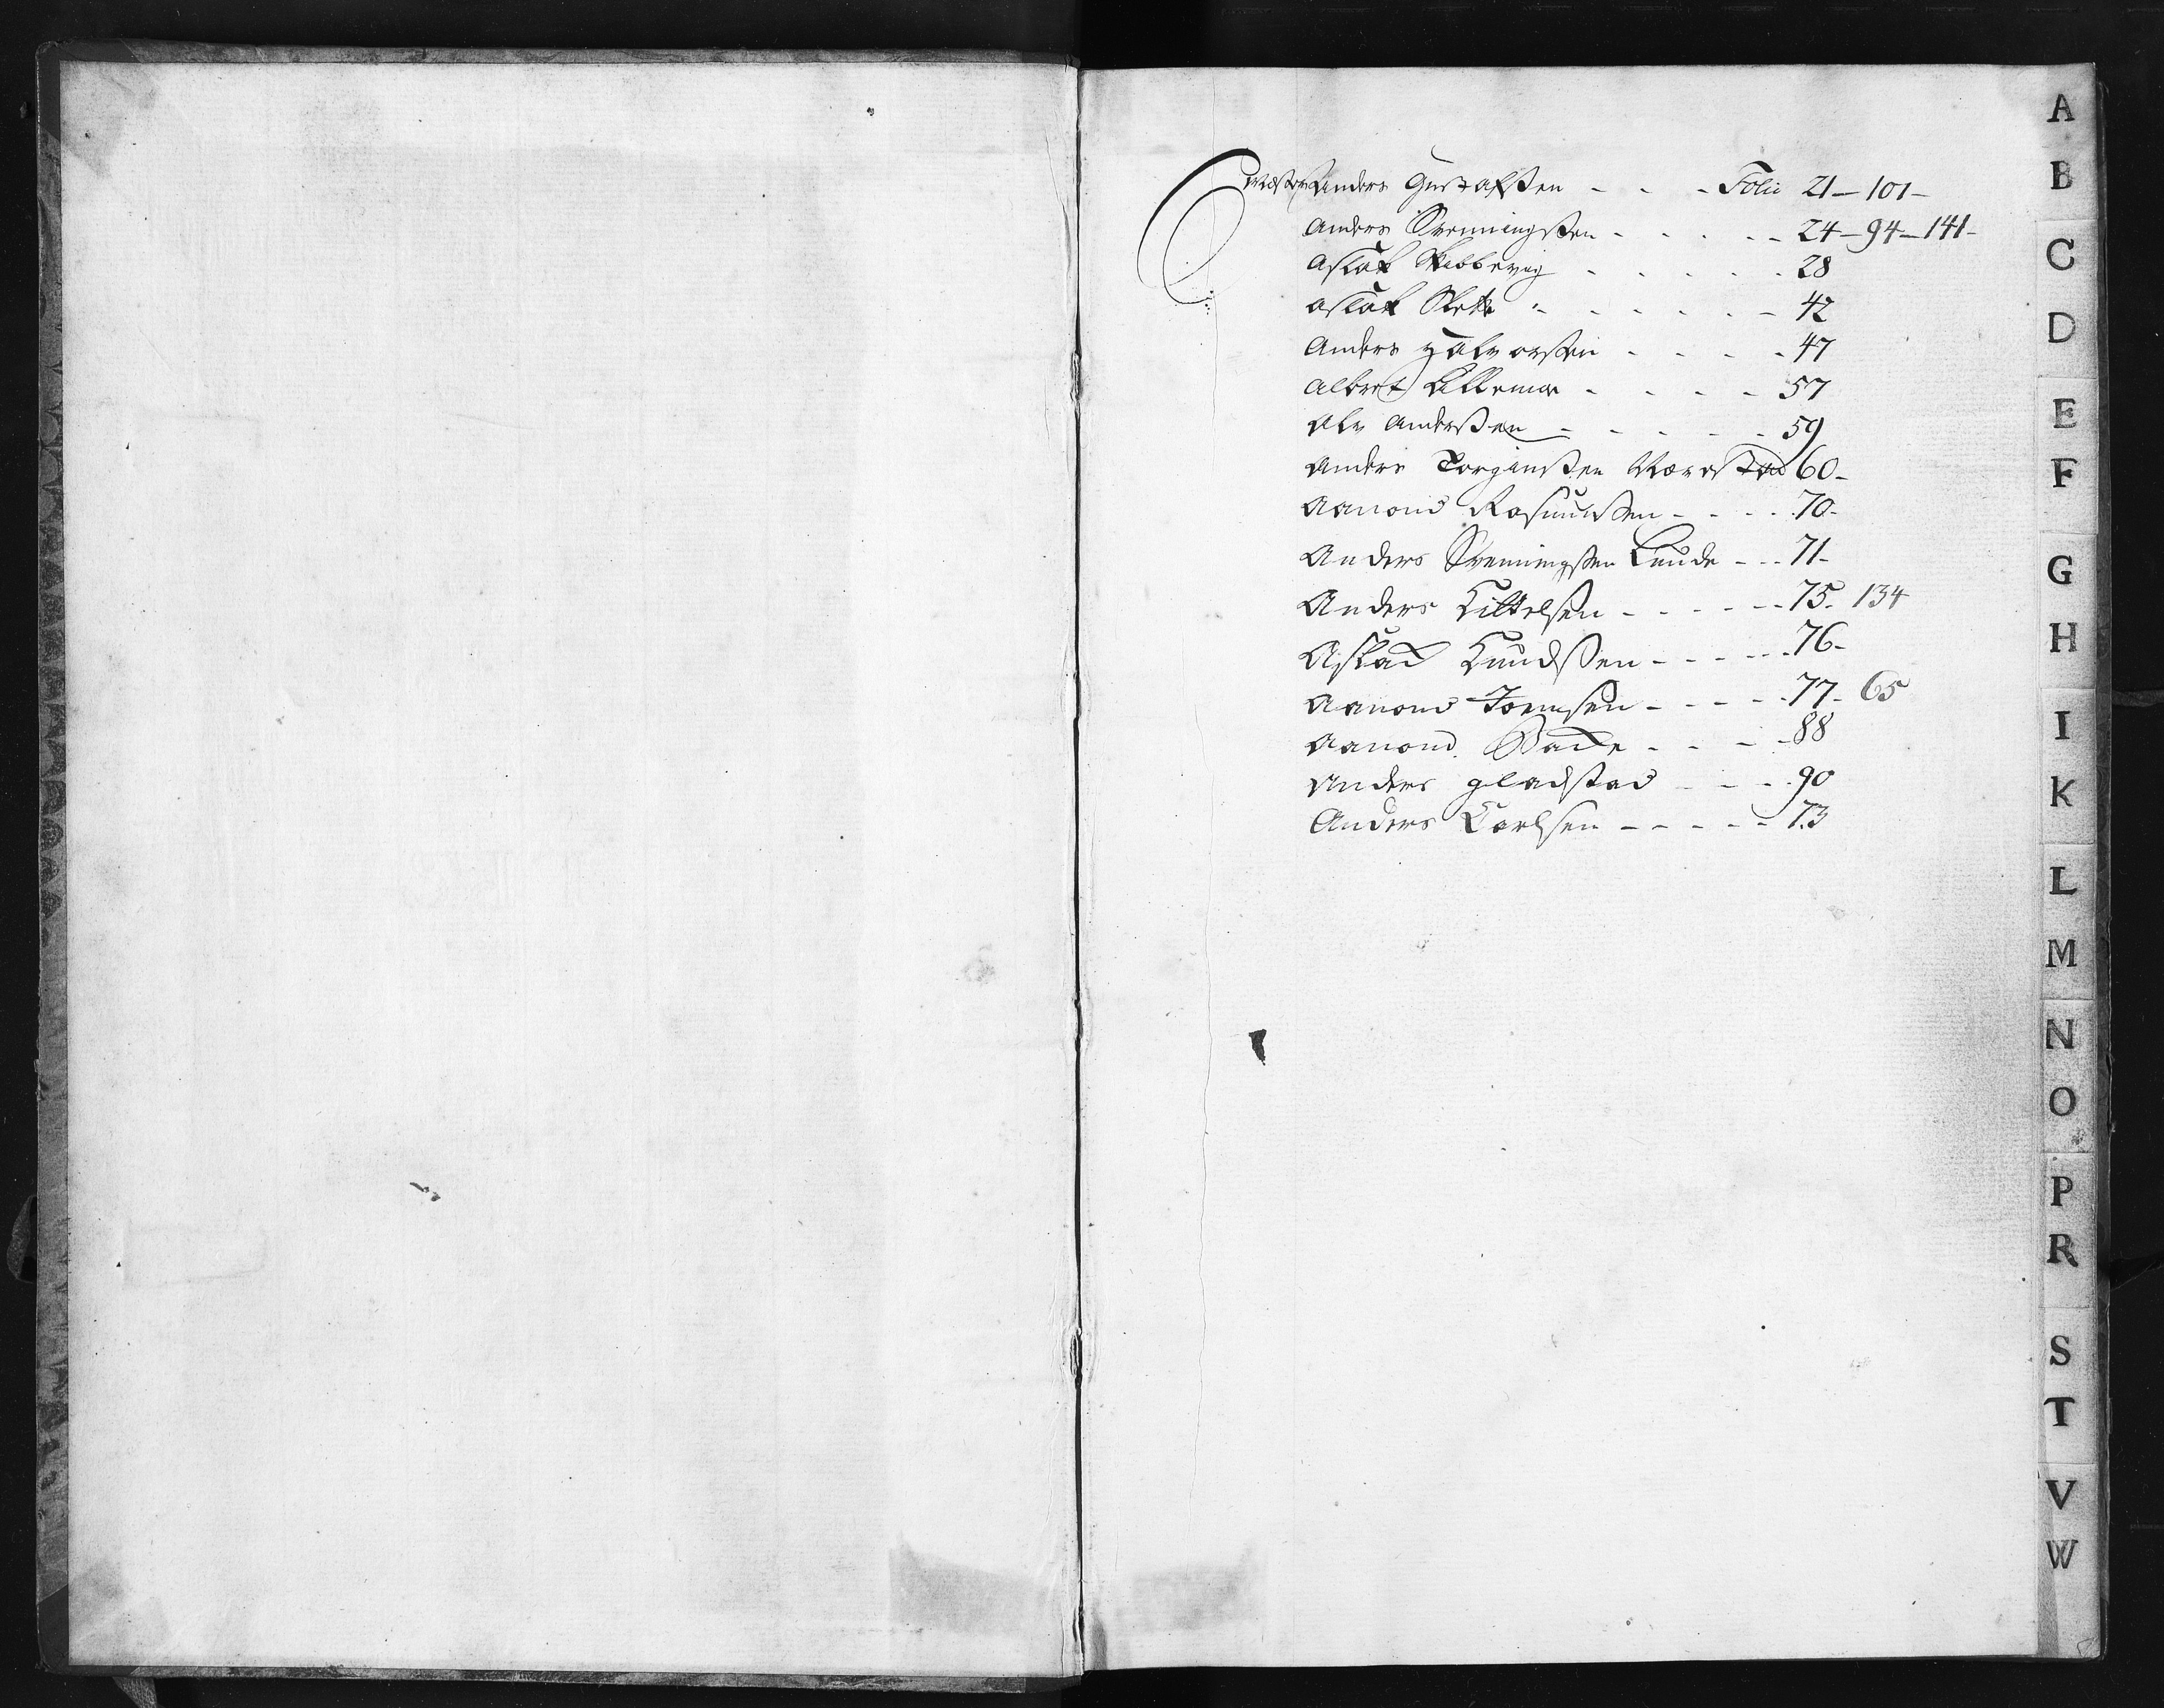 Mester Anders Gustafsen - - - Folio 21 - 101 -
Anders Svenningsen - - - - - 24 - 94 - 141 -
Aslak Skibbevig - - - - - 28
Aslak Slette - - - - - - 42
Anders Halvorsen - - - - 47
Albret - - - - 57
Alv Andersen - - - - - 59
Anders Torgiusen 60 -
Aanond Rosmussen - - - - 70 -
Anders Svenningsen Lunde - - - 71 -
Anders Kittelsen - - - - - - 75 - 134
Aslack Knudsen - - - - - - 76 -
Aanond Joensen - - - - - 77 - 65
Aanond Backe - - - - 88
Anders gladstad - - - - 90
Anders Carlsen - - - - - 73
A
B
C
D
E
F
G
H
I
K
L
M
N
O
P
R
S
T
V
W